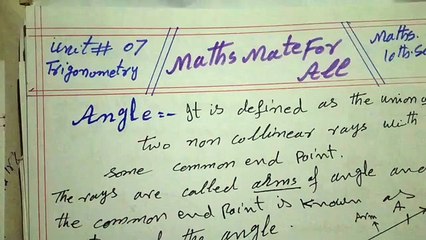 Unit# 07
Trigonometry
Maths Mate For
All
Maths.
10th-Sc
Angle:- It is defined as the union o
two non collinear rays with
some common end Point.
The rays are called arms of angle and
the common end Point is known as
the angle.
Arm
A